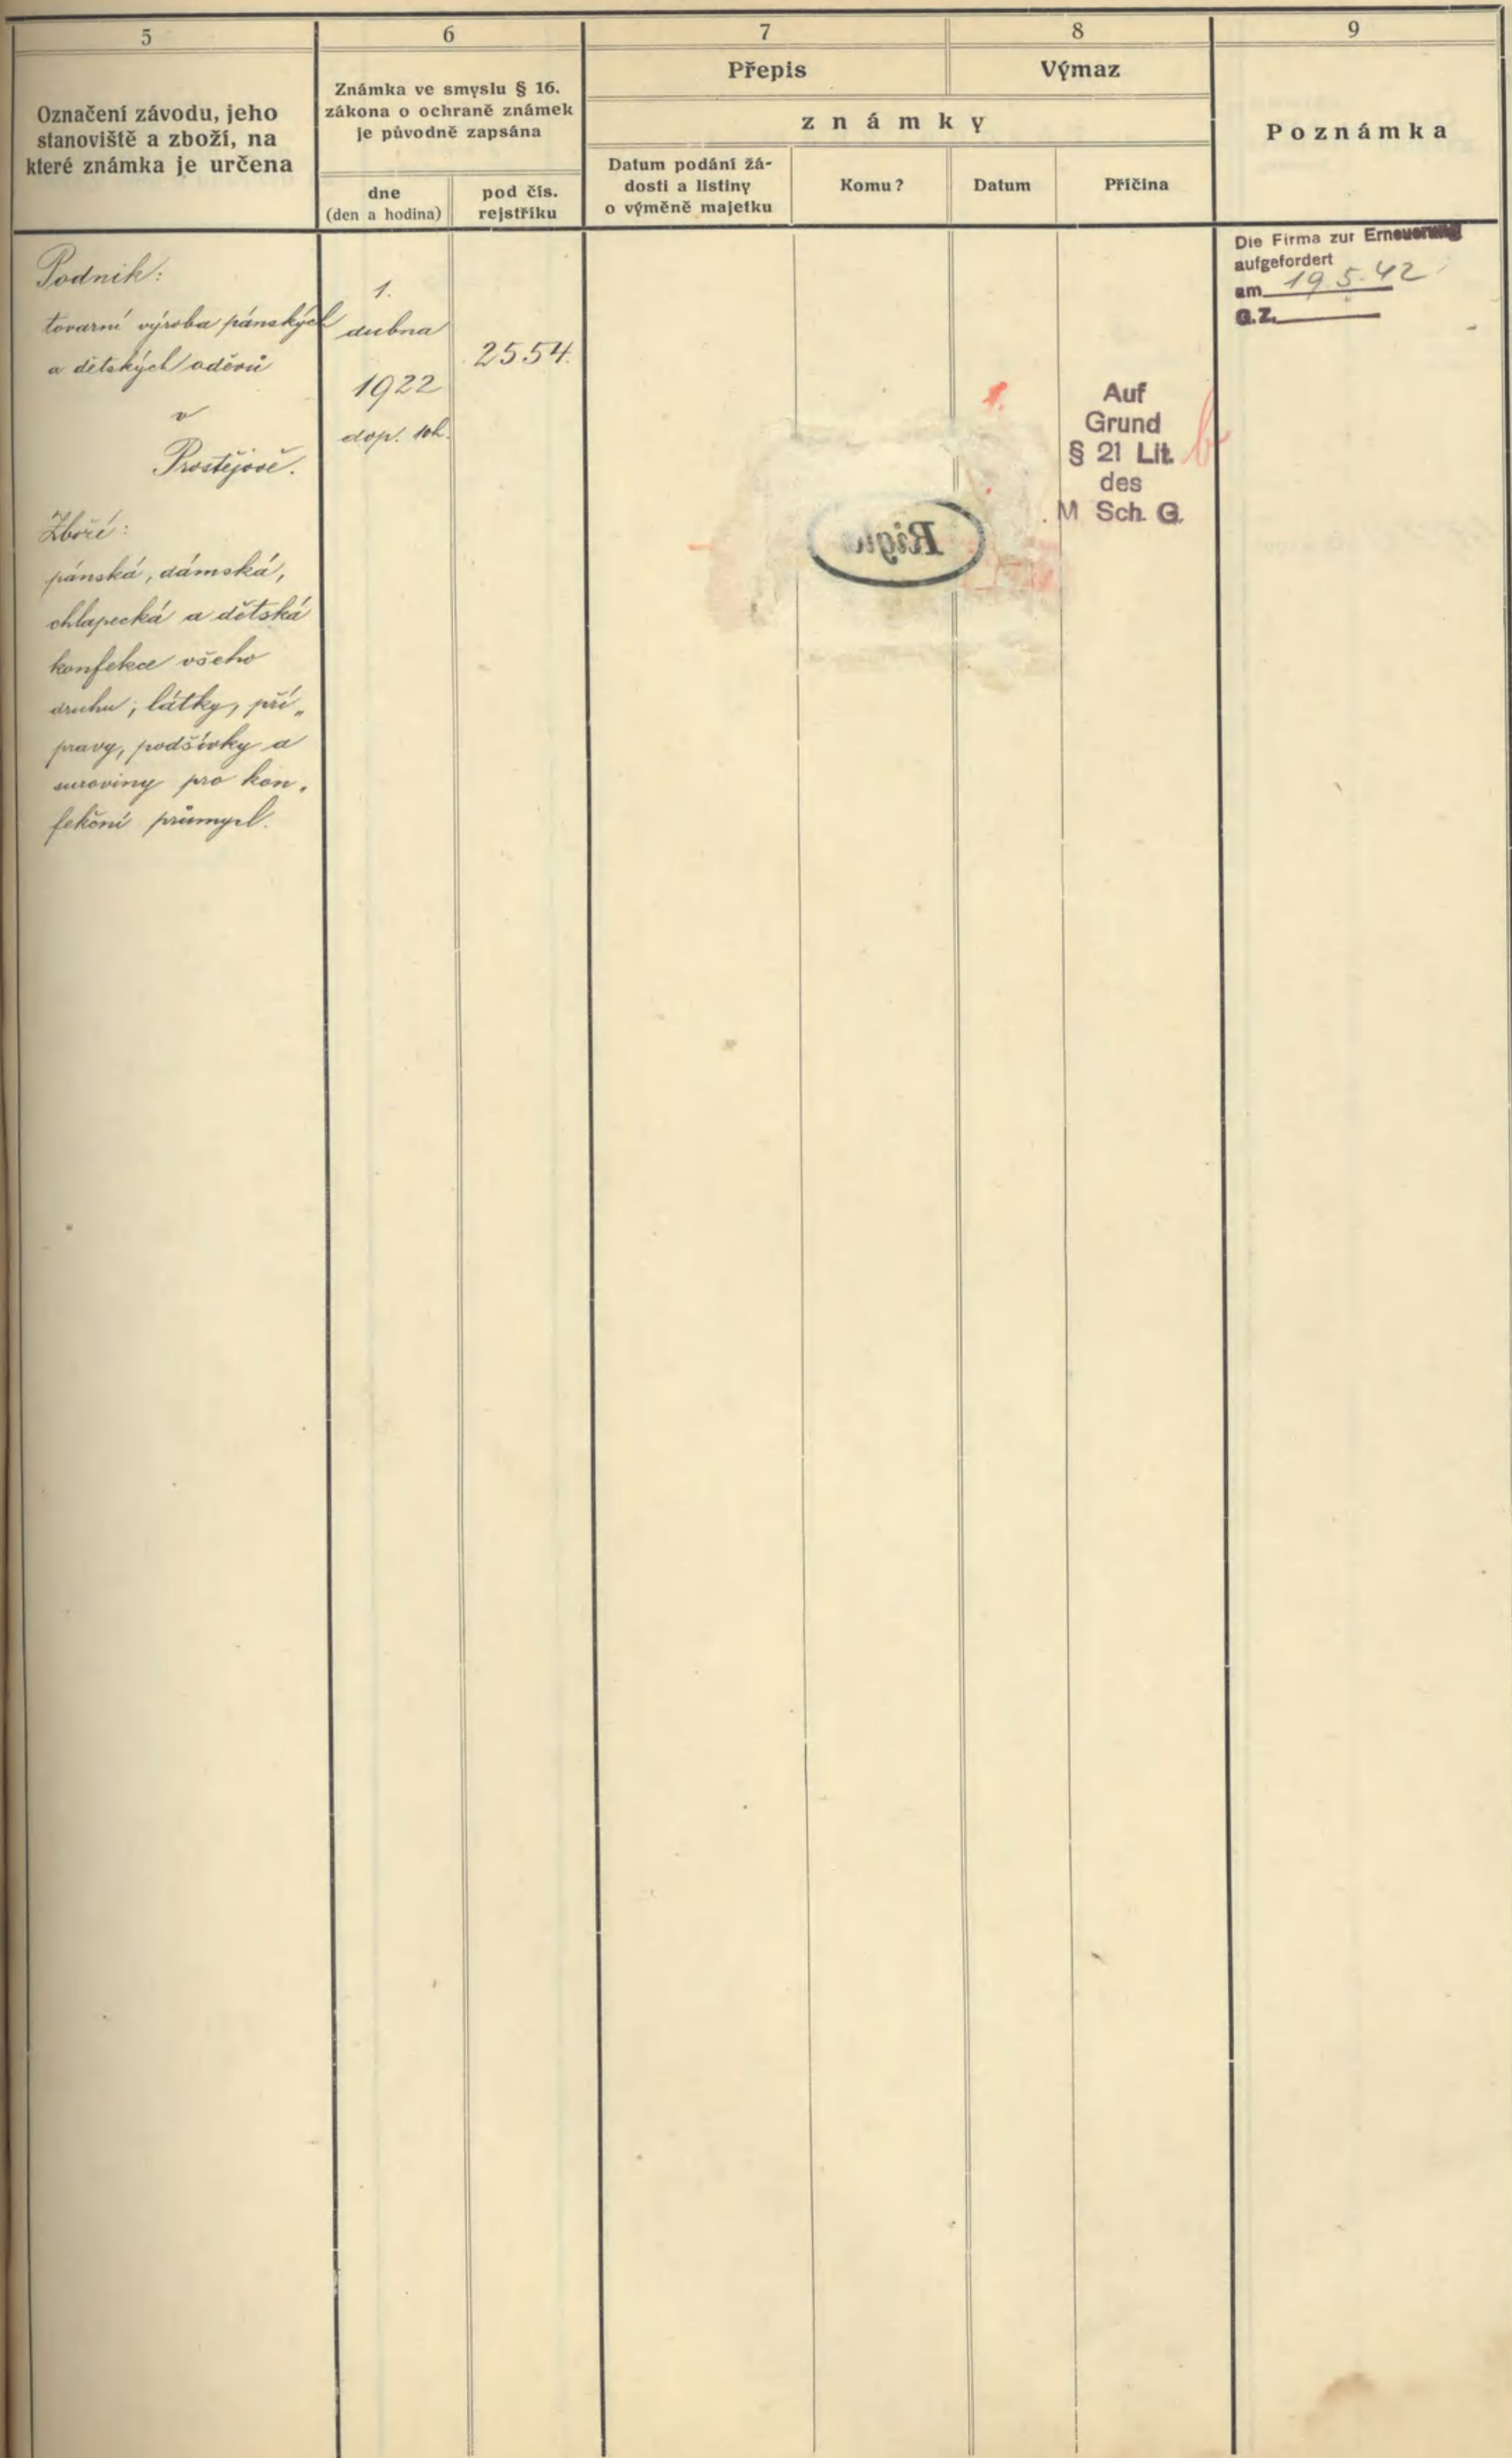 5
6
7
8
9
Označení závodu, jeho
stanoviště a zboží, na
které známka je určena
Známka ve smyslu § 16.
zákona o ochraně známek
je původně zapsána
dne
(den a hodina)
pod čís.
rejstříku
Přepis
Výmaz
známky
Datum podání žá-
dosti a listiny
o výměně majetku
Komu?
Datum
Příčina
Poznámka
Podnik:
tovarní výroba pánských
a dětských oděvů
v
Prostějově.
Zboží:
pánská, dámská,
chlapecká a dětská
konfekce všeho
druhu; látky, pří„
pravy, podšívky a
suroviny pro kon„
fekční průmysl.
1.
dubna
1922
dop. 10h.
2554.
Auf
Grund
§ 21 Lit. b
des
M Sch. G.
Die Firma zur Erneuerung
aufgefordert
am 19 5. 42
G.Z.